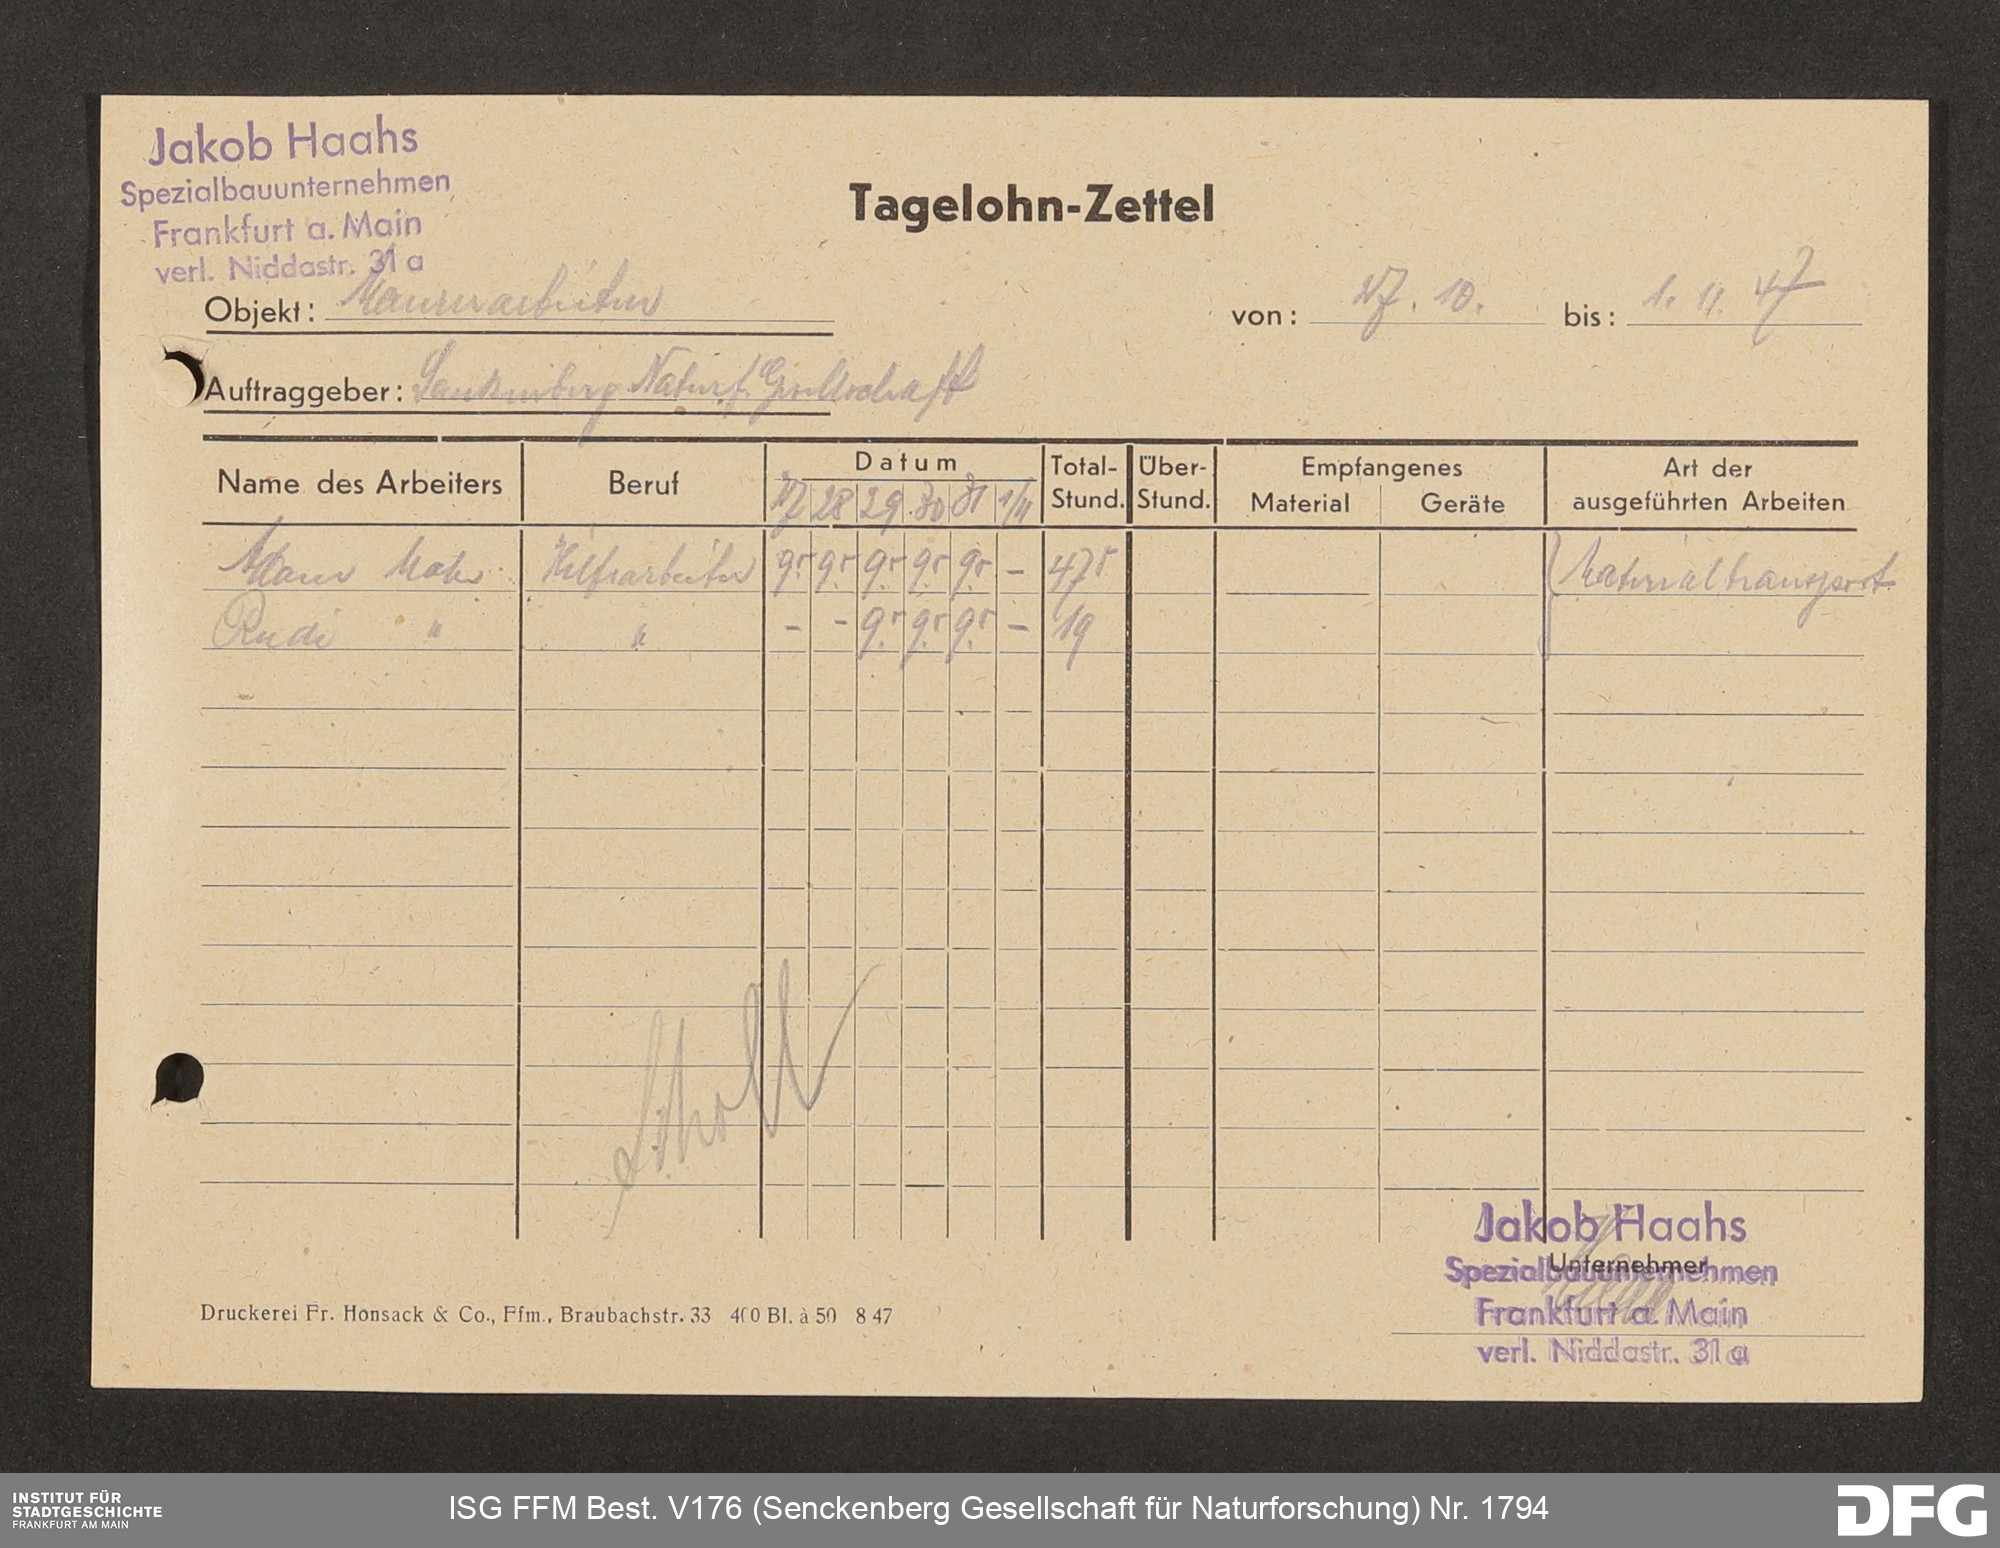 Jakob Haahs
Spezialbauunternehmen
Frankfurt a. Main
verl. Niddastr. 31 a
Tagelohn-Zettel
Objekt: Maurerarbeiten
von: 27. 10. bis: 1. 11. 47
Auftraggeber: Senkenberg Naturf. Gesellschaft
Name des Arbeiters Beruf Datum Total-Stund. Über-Stund. Empfangenes Material Geräte Art der ausgeführten Arbeiten
27 28 29 30 31 1/11
Adam Hilfsarbeiter 9.5 9.5 9.5 9.5 9.5 – 47 5 Materialtransport
Rudi " " – – 9.5 9.5 9.5 – 19
Jakob Haahs
Unternehmer
Spezialbauunternehmen
Frankfurt a. Main
verl. Niddastr. 31 a
Druckerei Fr. Honsack & Co., Ffm., Braubachstr. 33 400 Bl. à 50 8 47
INSTITUT FÜR
STADTGESCHICHTE
FRANKFURT AM MAIN
ISG FFM Best. V176 (Senckenberg Gesellschaft für Naturforschung) Nr. 1794
DFG